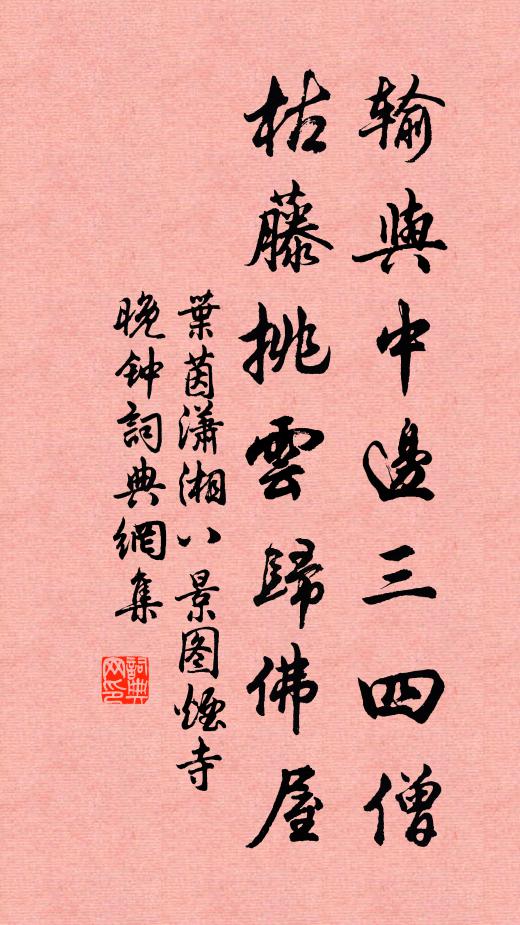 输與中邊三四僧
枯藤挑雲歸佛屋
葉茵瀟湘八景图煙寺
晚钟詞典網集
詞典网印